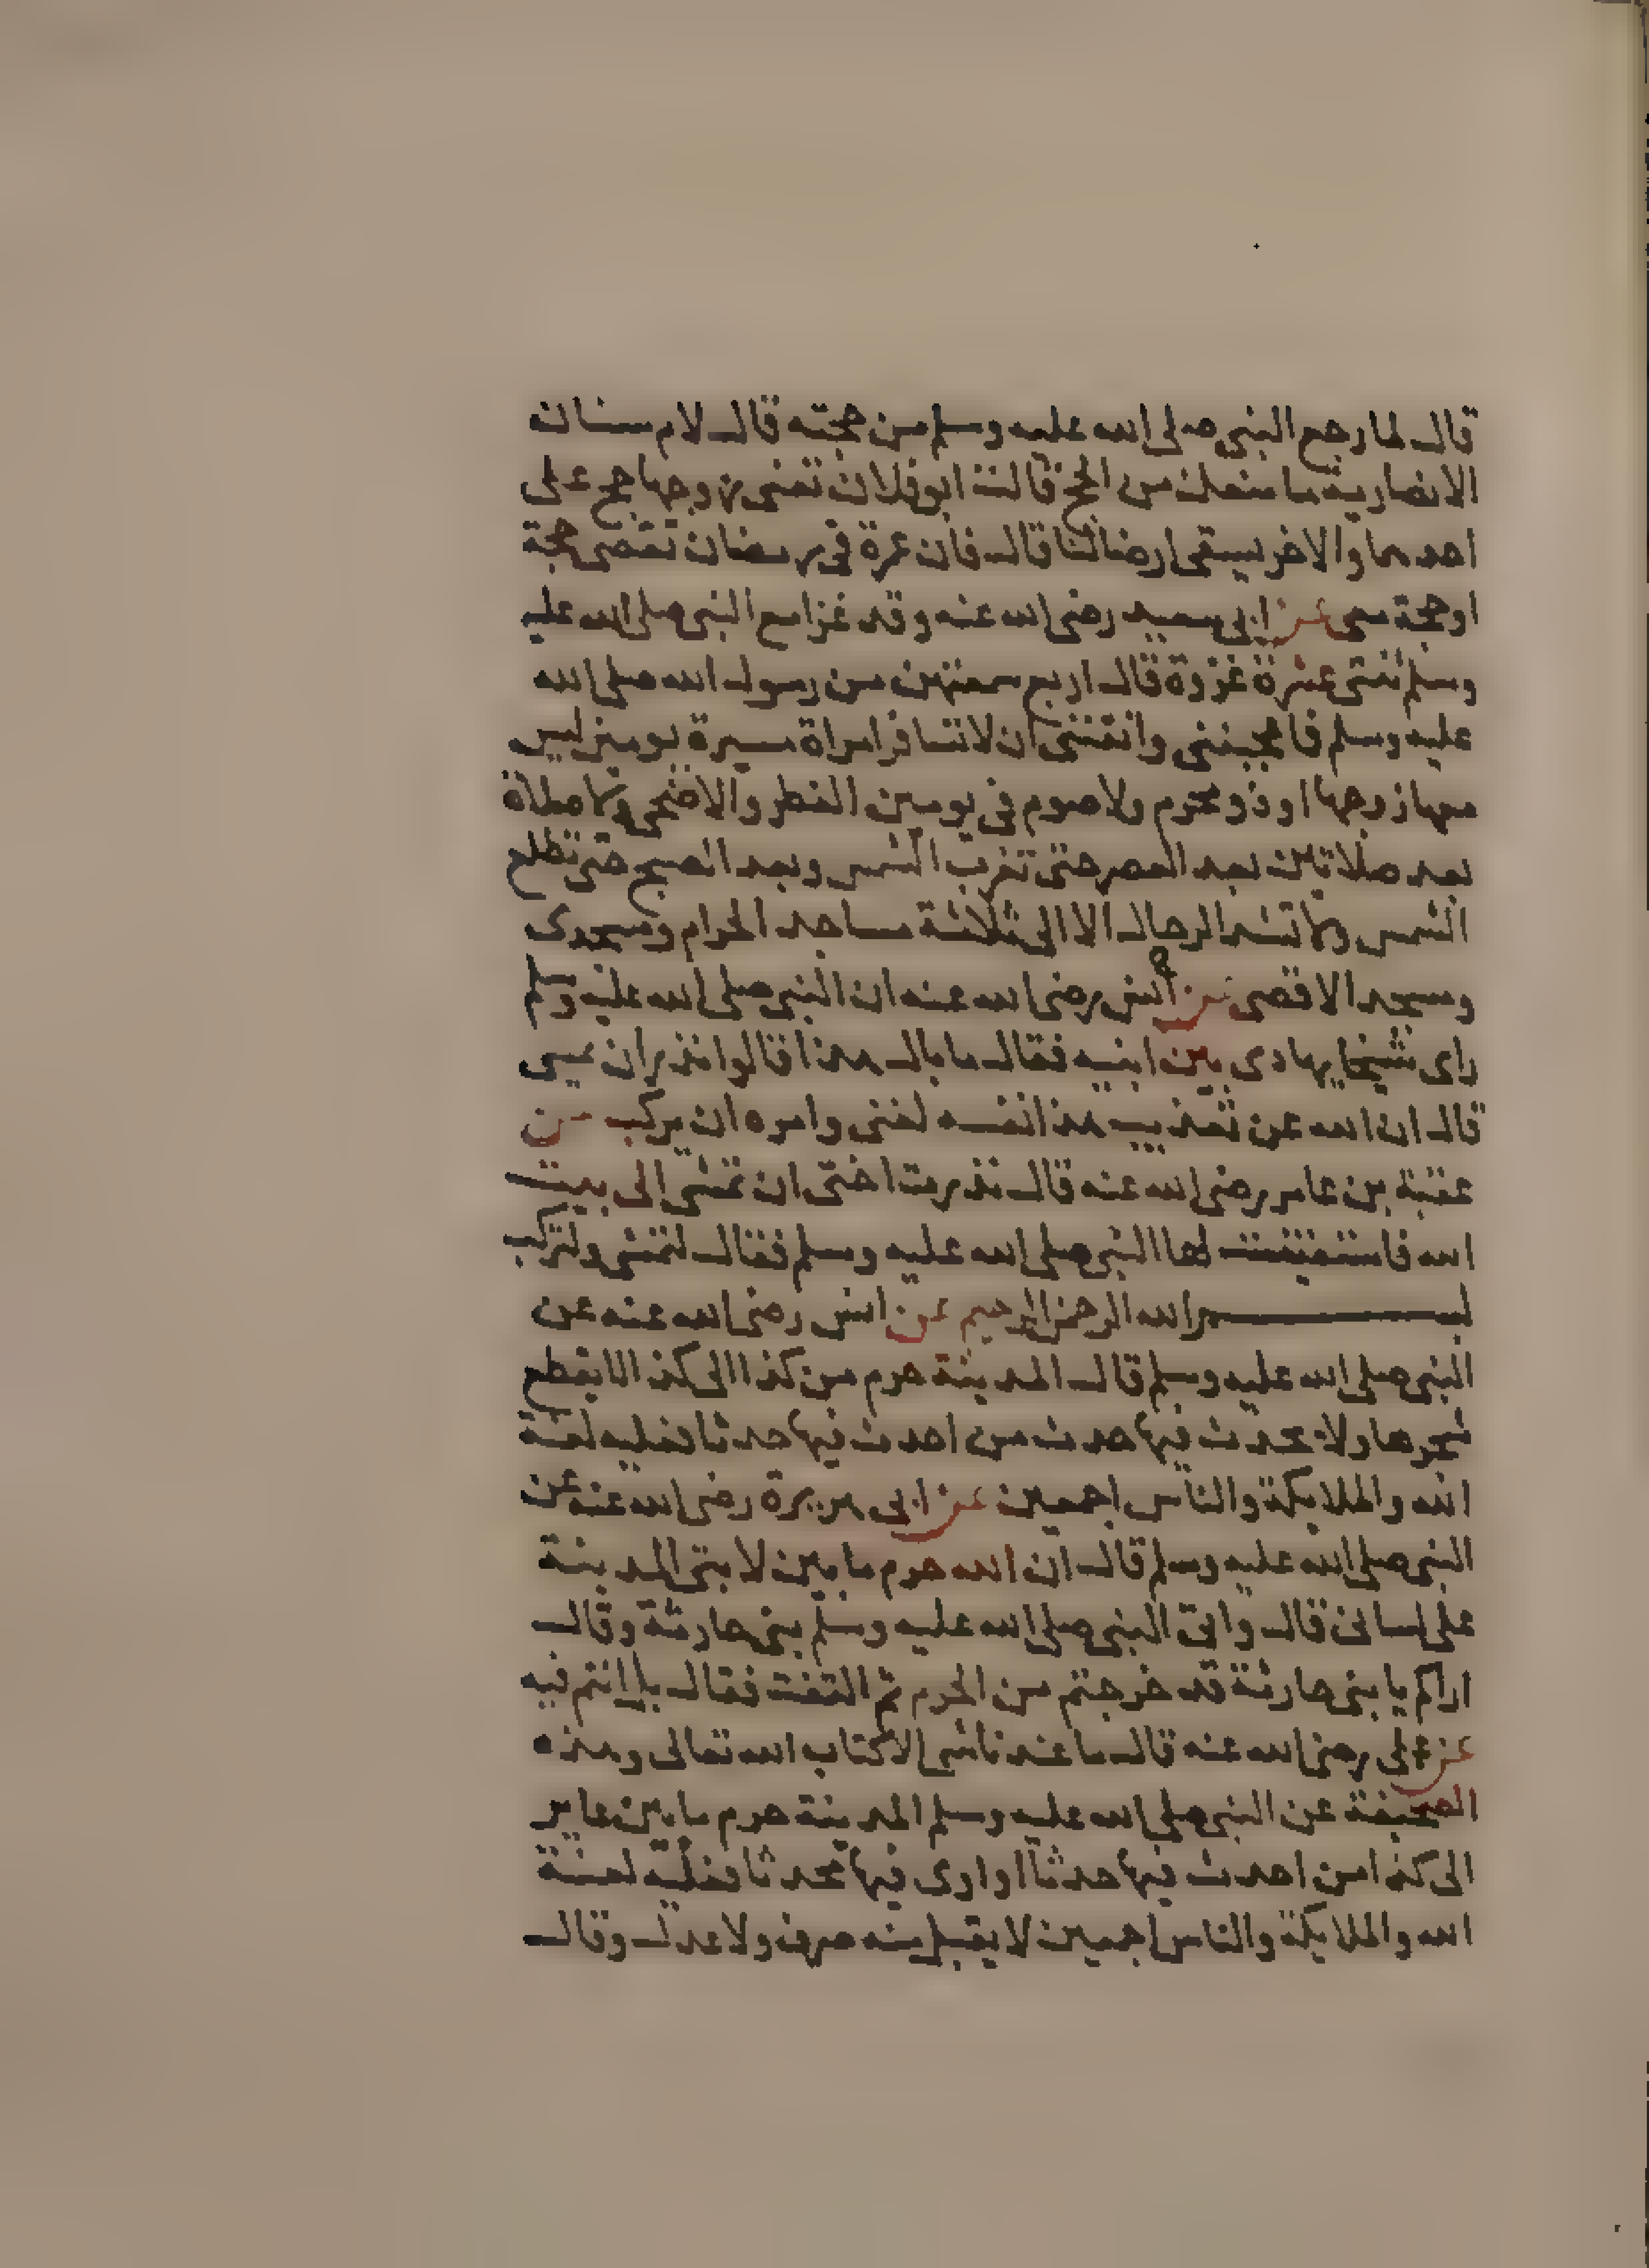 قال لما رجع النبي صلى الله عليه وسلم من حجته قال لام سنان
الانصارية ما منعك من الحج قالت ابو فلان تعني زوجها حج على
احدهما والاخر يسقي ارضا لنا قال فان عمرة في رمضان تقضي حجة
او حجة معي عن ابي سعيد رضي الله عنه وقد غزا مع النبي صلى الله عليه
وسلم ثنتي عشرة غزوة قال اربع سمعتهن من رسول الله صلى الله
عليه وسلم فاعجبنني وانقنني ان لا تسافر امراة مسيرة يومين ليس
معها زوجها او ذو محرم ولا صوم في يومين الفطر والاضحى ولا صلاة
بعد صلاتين بعد العصر حتى تغرب الشمس وبعد الصبح حتى تطلع
الشمس ولا تشد الرحال الا الى ثلاثة مساجد الحرام ومسجدي
ومسجد الاقصى عن انس رضي الله عنه ان النبي صلى الله عليه وسلم
راى شيخا يهادى بين ابنيه فقال ما بال هذا قالوا نذر ان يمشي
قال ان الله عن تعذيب هذا نفسه لغني وامره ان يركب عن
عقبة بن عامر رضي الله عنه قال نذرت اختي ان تمشي الى بيت
الله فاستفتيت لها النبي صلى الله عليه وسلم فقال لتمشي ولتركب
بسم الله الرحمن الرحيم عن انس رضي الله عنه عن
النبي صلى الله عليه وسلم قال المدينة حرم من كذا الى كذا لا يقطع
شجرها ولا يحدث فيها حدث من احدث فيها حدثا فعليه لعنة
الله والملايكة والناس اجمعين عن ابي هريرة رضي الله عنه عن
النبي صلى الله عليه وسلم قال ان الله حرم ما بين لابتي المدينة
على لساني قال واتى النبي صلى الله عليه وسلم بني حارثة وقال
اراكم يا بني حارثة قد خرجتم من الحرم ثم التفت فقال بل انتم فيه
عن علي رضي الله عنه قال ما عندنا شي الا كتاب الله تعالى وهذه
الصحيفة عن النبي صلى الله عليه وسلم المدينة حرم ما بين عاير
الى كذا من احدث فيها حدثا او اوى فيها محدثا فعليه لعنة
الله والملايكة والناس اجمعين لا يقبل منه صرف ولا عدل وقال